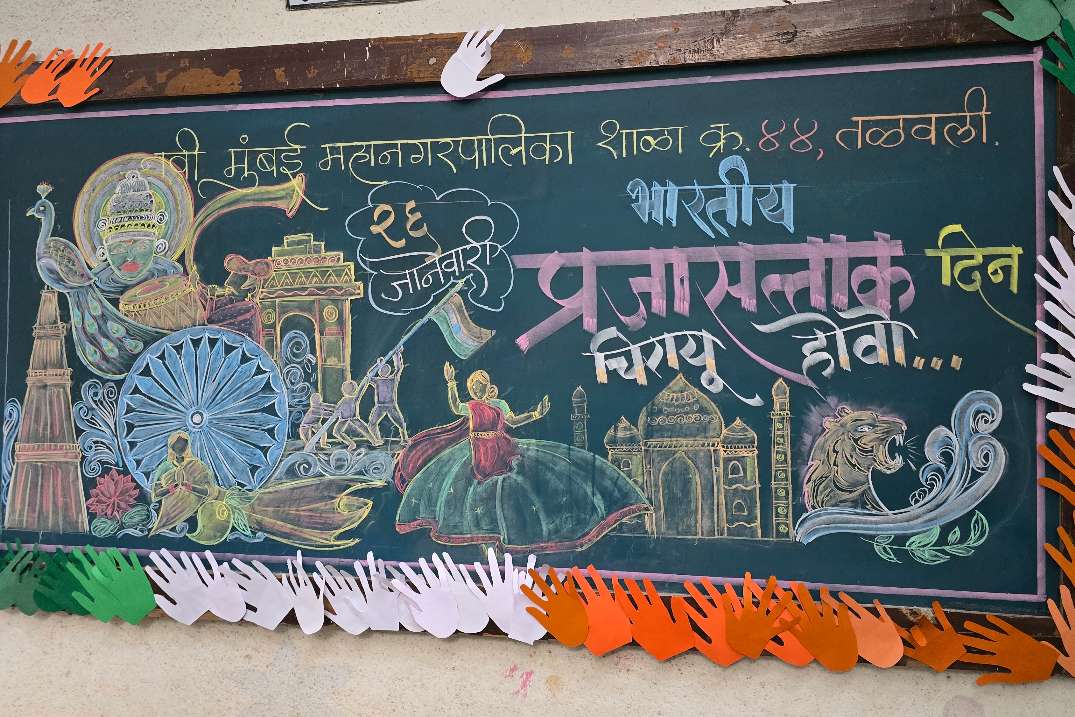 नवी मुंबई महानगरपालिका शाळा क्र. ४४, तळवली.
२६
जानेवारी
भारतीय
प्रजासत्ताक दिन
चिरायू होवो...